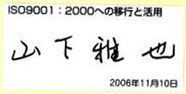 ISO9001：2000への移行と活用
山下雅也
2006年11月10日